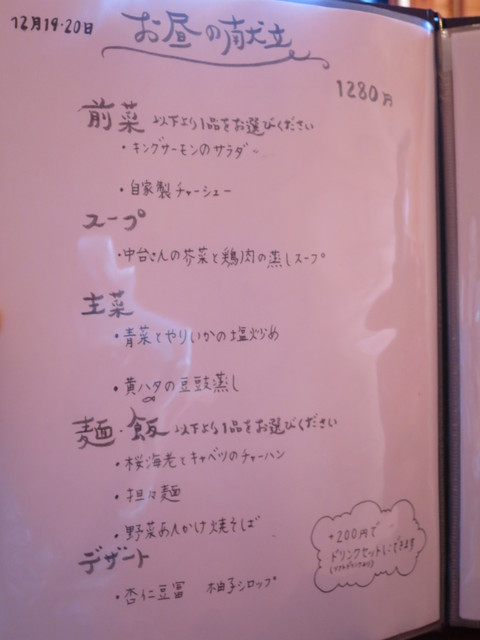 12月19・20日
お昼の献立
1280円
前菜 以下より1品をお選びください
・キングサーモンのサラダ
・自家製チャーシュー
スープ
・中台さんの芥菜と鶏肉の蒸しスープ
主菜
・青菜とやりいかの塩炒め
・黄ハタの豆豉蒸し
麺・飯 以下より1品をお選びください
・桜海老とキャベツのチャーハン
・担々麺
・野菜あんかけ焼そば
デザート
・杏仁豆冨 柚子シロップ
+200円で
ドリンクセットにできます